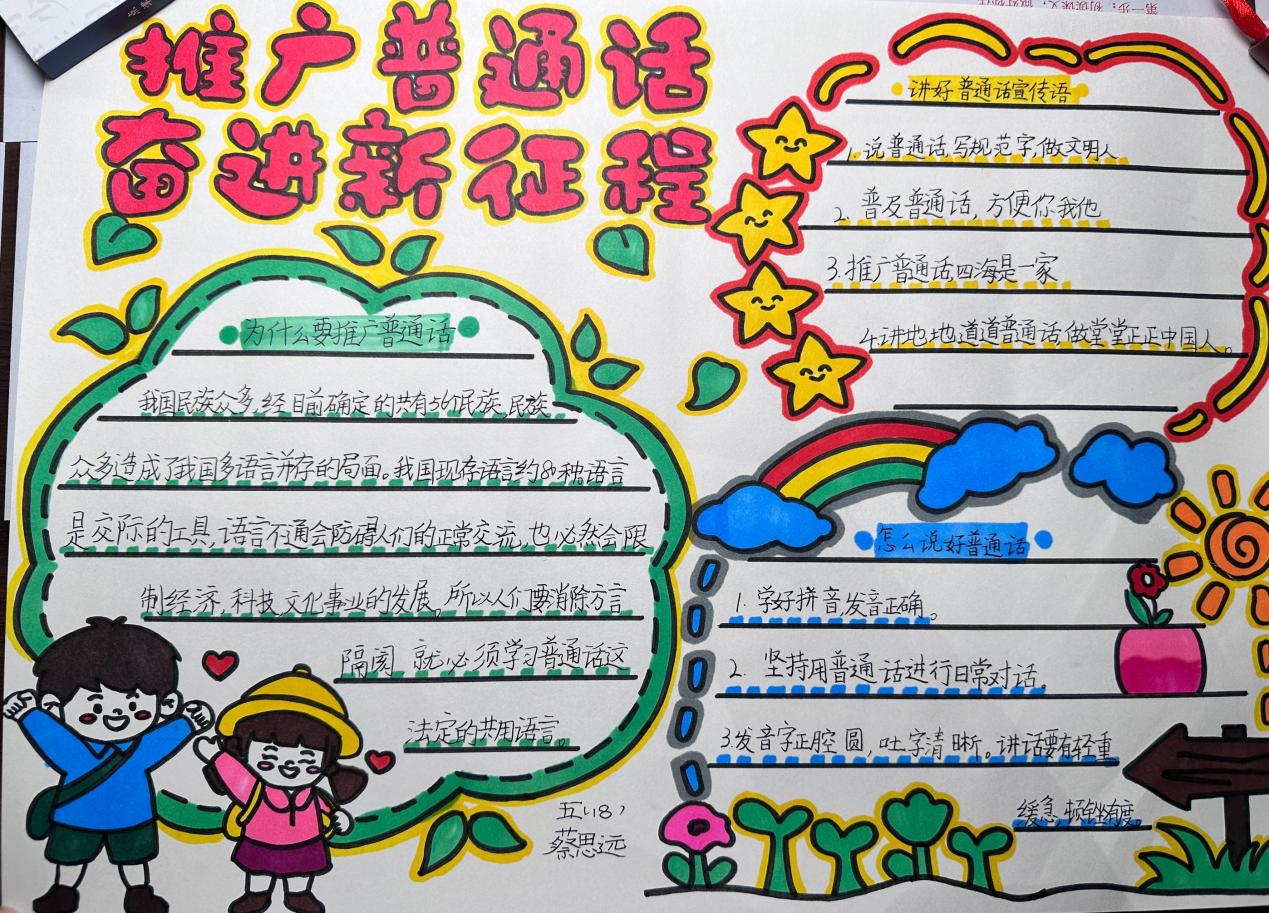 推广普通话
奋进新征程
讲好普通话宣传语
1. 说普通话,写规范字,做文明人
2. 普及普通话,方便你我他
3. 推广普通话四海是一家
4. 讲地地道道普通话,做堂堂正正中国人。
为什么要推广普通话
我国民族众多,经目前确定的共有56个民族,民族
众多造成了我国多语言并存的局面。我国现存语言约80种,语言
是交际的工具,语言不通会防碍人们的正常交流,也必然会限
制经济,科技,文化事业的发展。所以人们要消除方言
隔阂 就必须学习普通话这
法定的共用语言。
怎么说好普通话
1. 学好拼音,发音正确。
2. 坚持用普通话进行日常对话。
3. 发音字正腔圆,吐字清晰。讲话要有轻重
缓急,顿锉有度。
五(18)
蔡思远